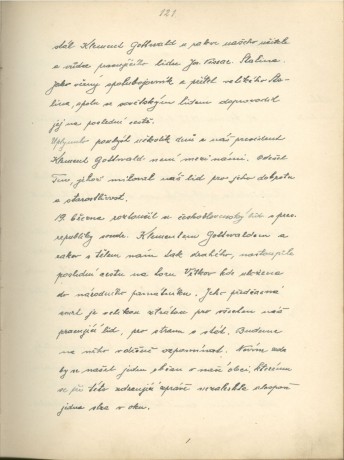 121
stál Klement Gottwald u rakve našeho učitele
a vůdce pracujícího lidu Jos. Vissar. Stalina.
Jako věrný spolubojovník a přítel velikého Sta-
lina, spolu se sovětským lidem doprovodil
jej na poslední cestě.
Uplynulo pouhých několik dnů a náš president
Klement Gottwald není mezi námi. Odešel
Ten, jehož miloval náš lid pro jeho dobrotu
a starostlivost.
19. března rozloučil se československý lid s pres.
republiky soudr. Klementem Gottwaldem a
rakev s tělem nám tak drahého, nastoupila
poslední cestu na horu Vítkov kde uložena
do národního památníku. Jeho předčasná
smrt je velikou ztrátou pro všechen náš
pracující lid, pro stranu a stát. Budeme
na něho vděčně vzpomínat. Nevím zda
by se našel jeden občan v naší obci, kterému
se při této zdrcující zprávě nezaleskla alespoň
jedna slza v oku.